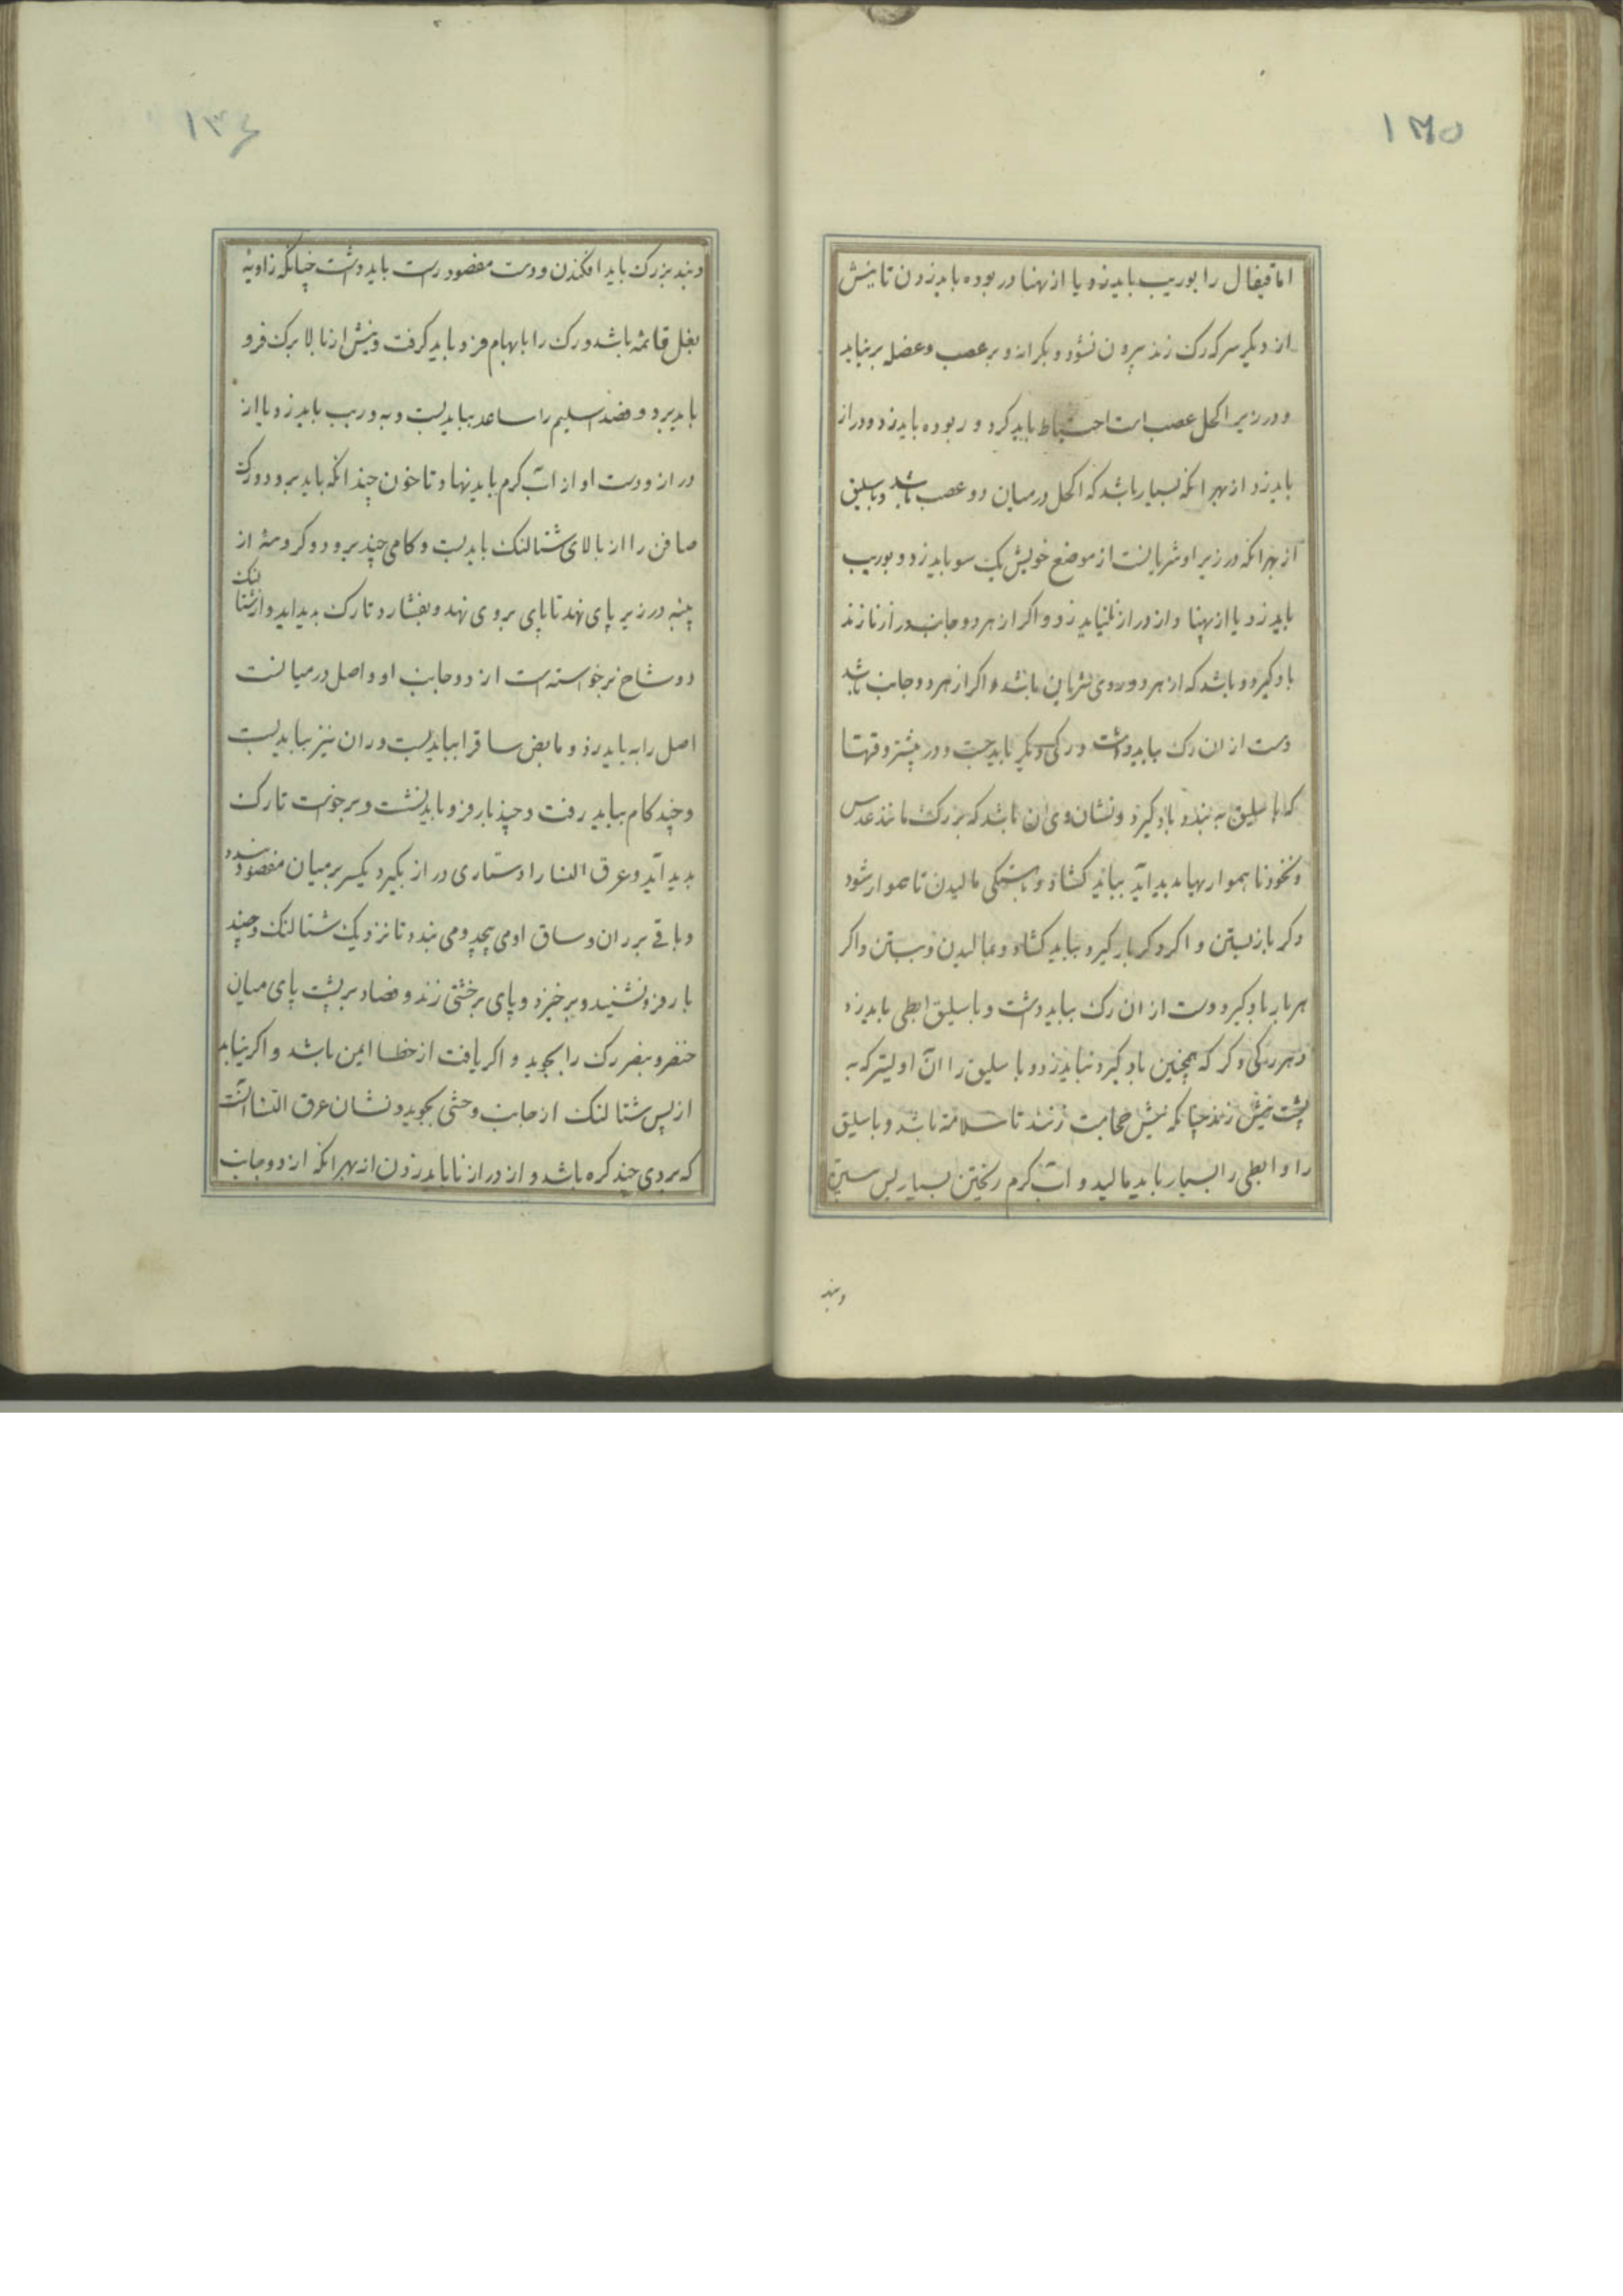 ۱۳۵
اما قیفال را بوریب باید زد و یا از پهنا و ربوده باید زدن تا نیش
از دیکر سر که رک زند بیرون نشود و بکراند و بر عصب و عضل بر نیاید
و در زیر اکحل عصب است احتیاط باید کرد و ربوده باید زد و دراز
باید زد از بهر انکه بسیار باشد که اکحل در میان دو عصب باشد و باسلیق
از بهر انکه در زیر او شریانست از موضع خویش یک سو باید زد و بوریب
باید زد یا از پهنا و از دراز نباید زد و اکر از هر دو جانب دراز نا زند
باد کیرد و باشد که از هر دو روی شریان باشد و اکر از هر دو جانب باشد
دست از ان رک بباید داشت و رکی دیکر باید جست و در بیشتر وقتها
که باسلیق به بندد باد کیرد و نشان وی ان باشد که بر رک مانند عدس
و نخود ناهمواریها پدید اید بباید کشاد و باهستکی مالیدن تا هموار شود
و کر باز بستن و اکر دکر بار کیرد بباید کشاد و بمالیدن و بستن و اکر
هر بار باد کیرد دست از ان رک بباید داشت و باسلیق ابطی باید زد
و هر رکی دکر که همچنین باد کیرد نباید زد و باسلیق را آن اولیتر که به
پشت نیش زنند چنانکه نیش حجامت زنند تا سلامة باشد و باسلیق
را و ابطی را بسیار باید مالید و آب کرم ریختن بسیار پس ستبرة
وبند
۱۳۶
و بند بزرک باید افکندن و دست مفصود راست باید داشت چنانکه زاویه
بغل قائمه باشد و رک را بابهام فرو باید کرفت و نیش از بالا برک فرو
باید برد و فصد اسلیم را ساعد بباید بست و به وریب باید زد یا از
دراز و دست او از آب کرم باید نهاد تا خون چندانکه باید برود و رک
صافن را از بالای شتالنک باید بست و کامی چند برود و کروهه از
پنبه در زیر پای نهد تا پای بروی نهد و بفشارد تا رک پدید اید و از شتالنک
دو شاخ برخواسته است از دو جانب او و اصل در میانست
اصل را به باید زد و مابض ساقرا بباید بست و ران نیز بباید بست
و چند کام بباید رفت و چند بار فرو باید نشست و برخواست تا رک
پدید آید و عرق النسا را دستاری دراز بکیرد یکسر بر میان مفصود بندد
و باقی بر ران و ساق او می پیچد و می بندد تا نزدیک شتالنک و چند
بار فرو نشیند و بر خیزد و پای بر خشتی زند و فصاد بر پشت پای میان
خنصر و بنصر رک را بجوید و اکر یافت از خطا ایمن باشد و اکر نیابد
از پس شتالنک از جانب وحشی بجوید و نشان عرق النسا آنست
که بر وی چند کره باشد و از دراز نا باید زدن از بهر انکه از دو جانب